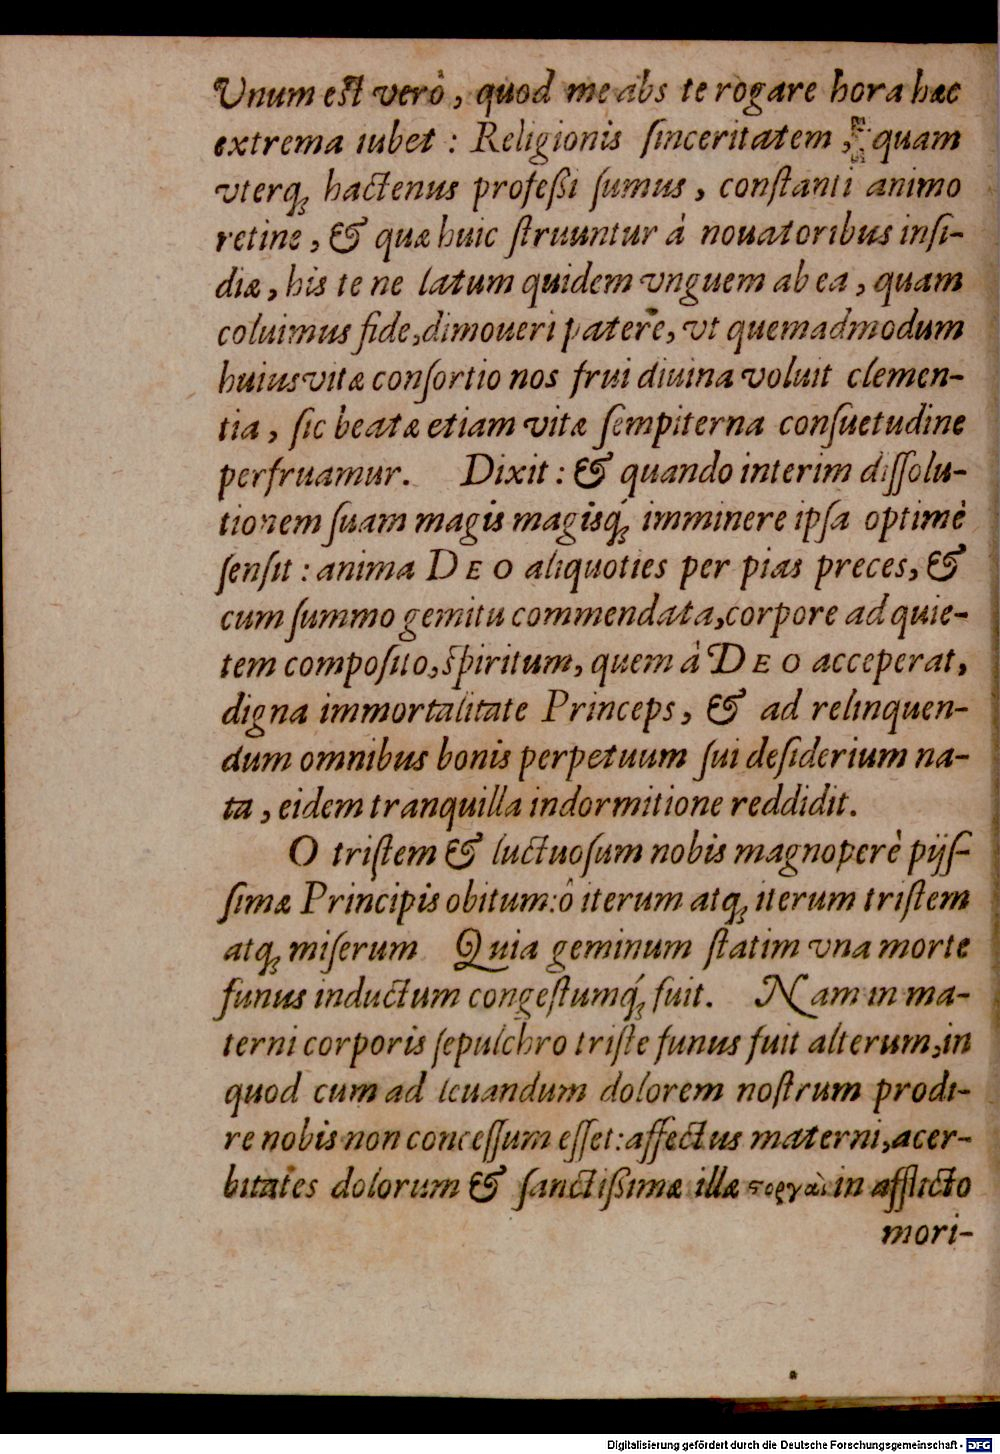 Vnum est verò, quod me abs te rogare hora hæc
extrema iubet : Religionis ſinceritatem , quam
vterq; hactenus profeßi ſumus , conſtanti animo
retine , & quæ huic ſtruuntur à nouatoribus inſi-
diæ , his te ne latum quidem vnguem ab ea , quam
coluimus fide, dimoueri patere, vt quemadmodum
huius vitæ conſortio nos frui diuina voluit clemen-
tia , ſic beatæ etiam vitæ ſempiterna conſuetudine
perfruamur. Dixit : & quando interim diſſolu-
tionem ſuam magis magisq́; imminere ipſa optimè
ſenſit : anima DEO aliquoties per pias preces, &
cum ſummo gemitu commendata, corpore ad quie-
tem compoſito, ſpiritum, quem à DEO acceperat,
digna immortalitate Princeps, & ad relinquen-
dum omnibus bonis perpetuum ſui deſiderium na-
ta , eidem tranquilla indormitione reddidit.
O triſtem & luctuoſum nobis magnoperè pijſ-
ſimæ Principis obitum: ô iterum atq; iterum triſtem
atq; miſerum Quia geminum ſtatim vna morte
funus inductum congeſtumq́; fuit. Nam in ma-
terni corporis ſepulchro triſte funus fuit alterum, in
quod cum ad leuandum dolorem noſtrum prodi-
re nobis non conceſſum eſſet: affectus materni, acer-
bitates dolorum & ſanctißimæ illæ ςοργαὶ in afflicto
mori-
Digitalisierung gefördert durch die Deutsche Forschungsgemeinschaft - DFG